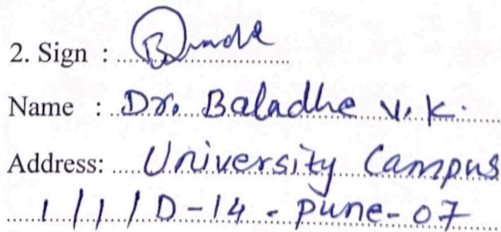 2. Sign :
Name : Dr. Baladhe V. K.
Address: University Campus
1/1/D-14 - Pune-07